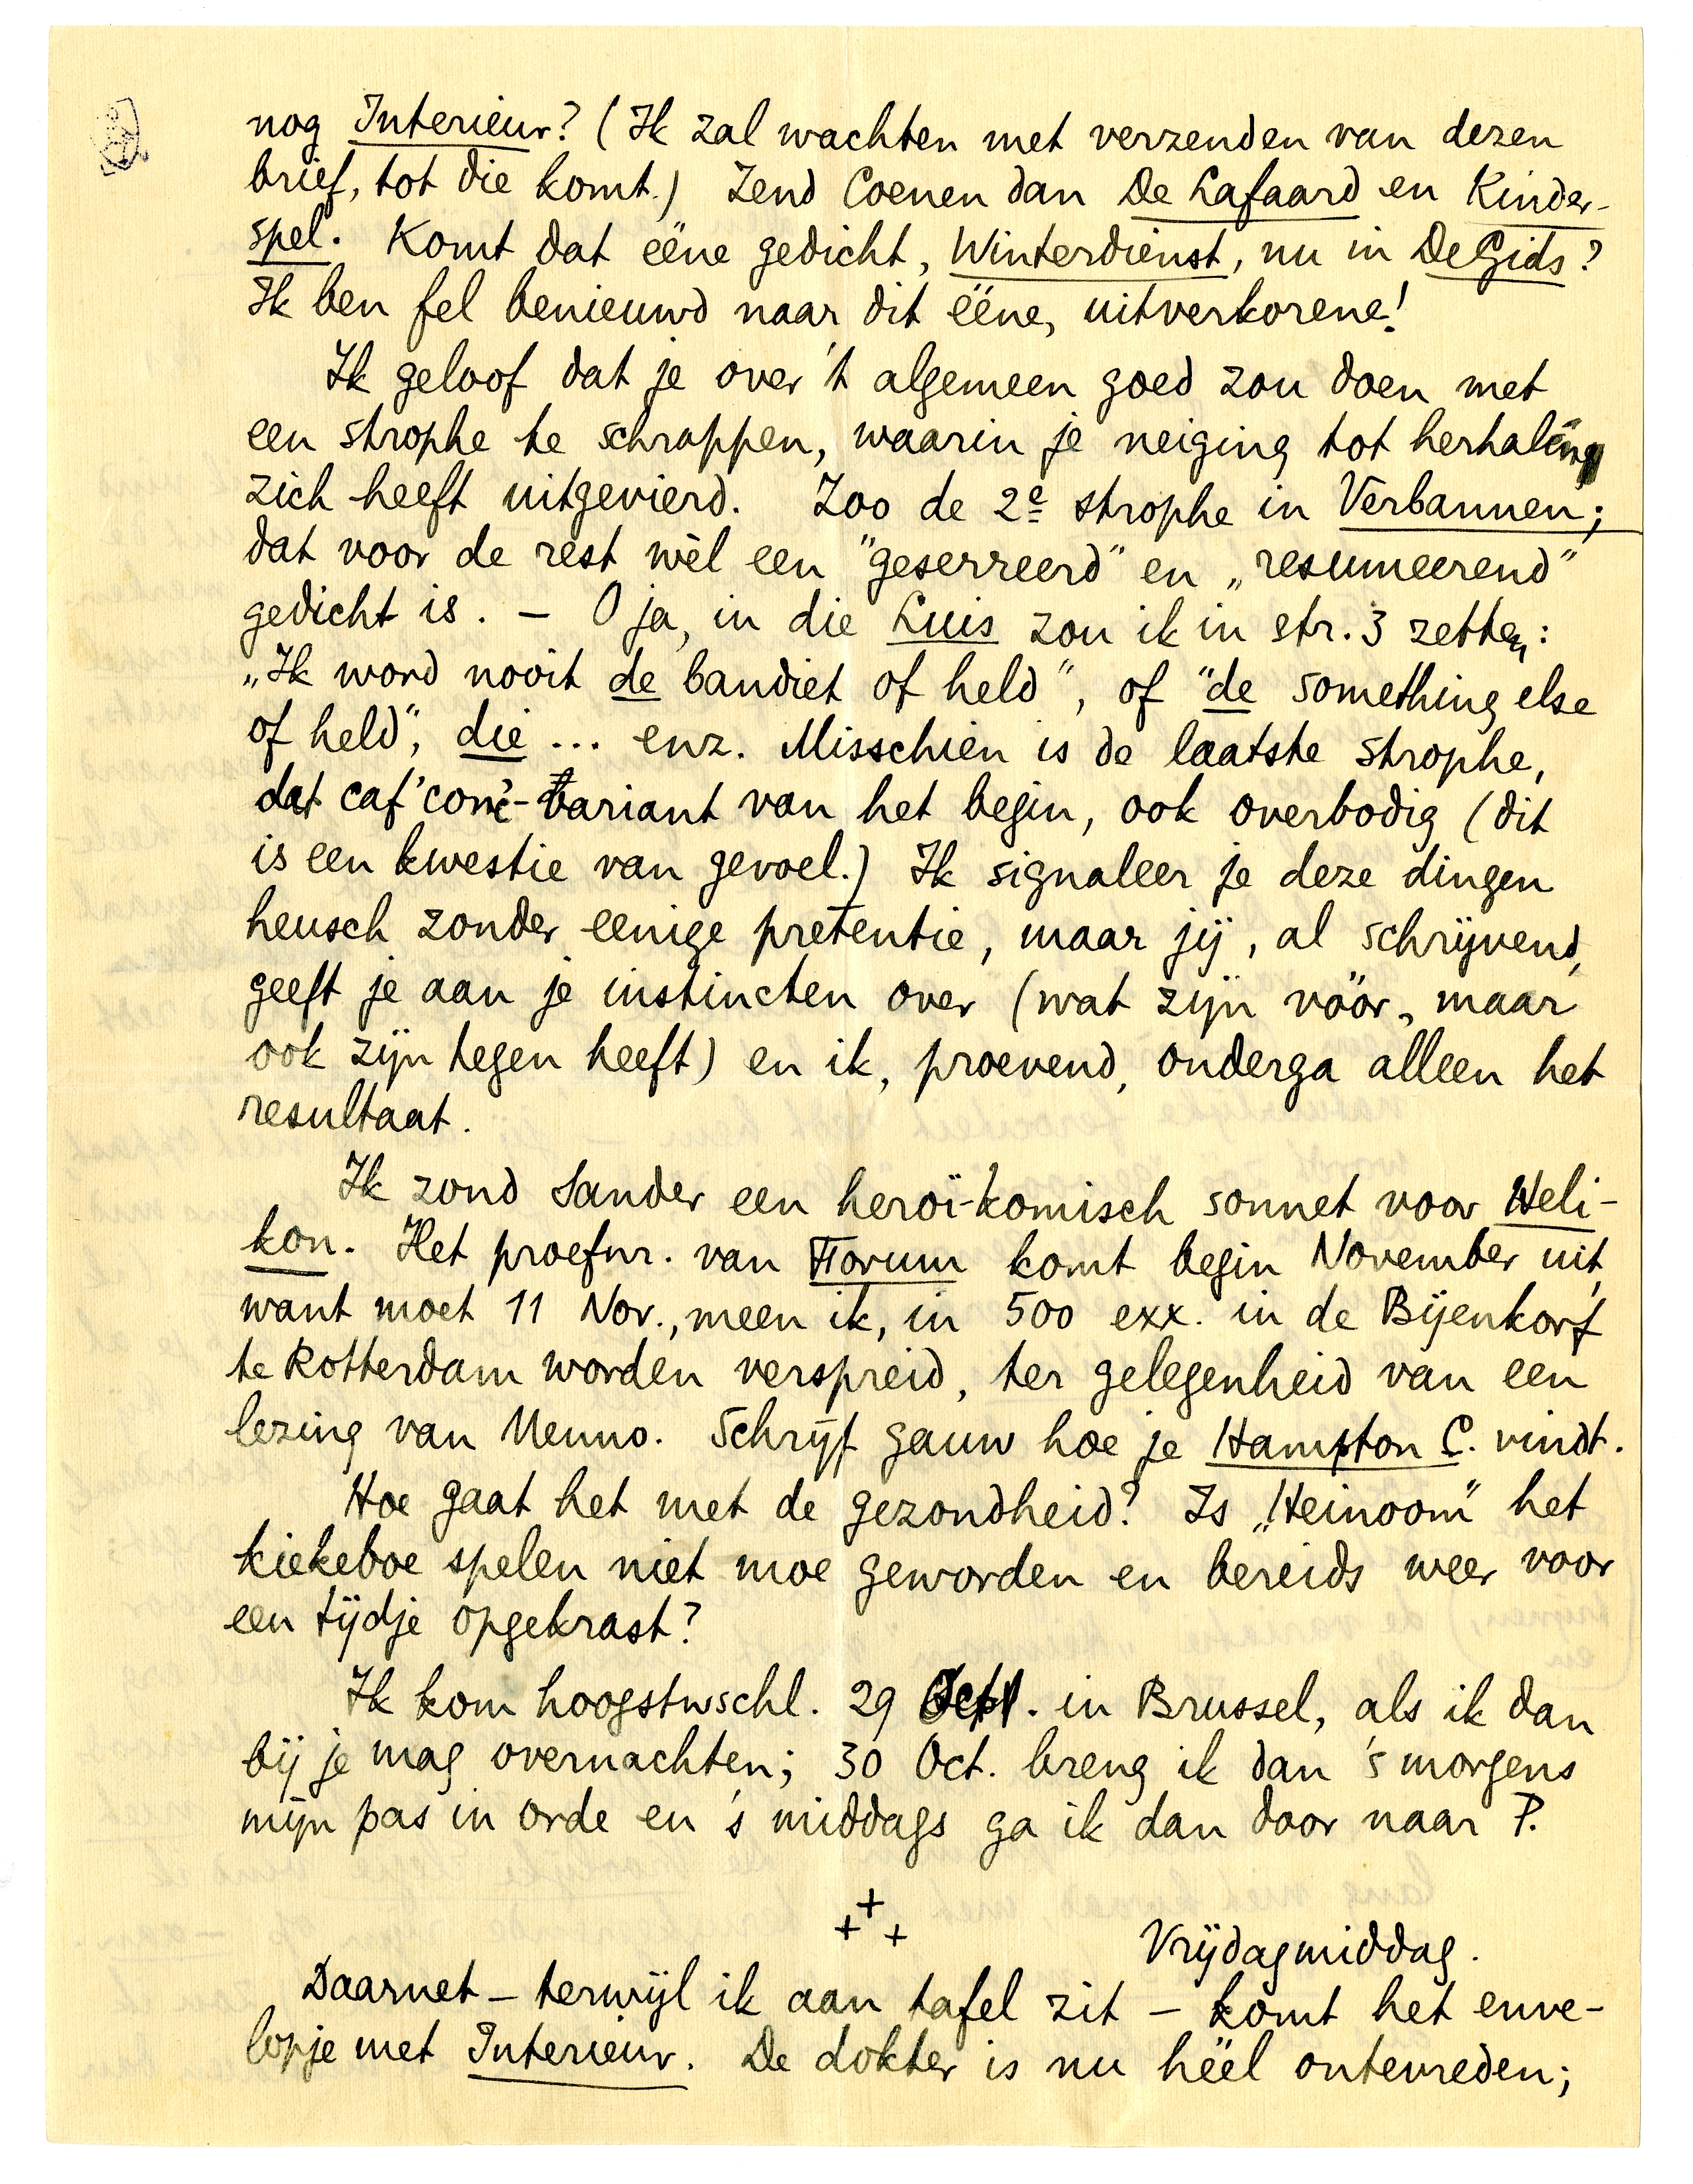 nog Interieur? (Ik zal wachten met verzenden van dezen
brief, tot die komt.) Zend Coenen dan De Lafaard en Kinder-
spel. Komt dat ééne gedicht, Winterdienst, nu in De Gids?
Ik ben fel benieuwd naar dit ééne, uitverkorene!
Ik geloof dat je over 't algemeen goed zou doen met
een strophe te schrappen, waarin je neiging tot herhaling
zich heeft uitgevierd. Zoo de 2e strophe in Verbannen;
dat voor de rest wèl een "geserreerd" en „resumeerend"
gedicht is. — O ja, in die Luis zou ik in str. 3 zetten:
„Ik word nooit de bandiet of held", of "de something else
of held", die ... enz. Misschien is de laatste strophe,
dat caf'conc'-variant van het begin, ook overbodig (dit
is een kwestie van gevoel.) Ik signaleer je deze dingen
heusch zonder eenige pretentie, maar jij, al schrijvend,
geeft je aan je instincten over (wat zijn vóór, maar
ook zijn tegen heeft) en ik, proevend, onderga alleen het
resultaat.
Ik zond Sander een heroï-komisch sonnet voor Heli-
kon. Het proefnr. van Forum komt begin November uit,
want moet 11 Nov., meen ik, in 500 exx. in de Bijenkorf
te Rotterdam worden verspreid, ter gelegenheid van een
lezing van Menno. Schrijf gauw hoe je Hampton C. vindt.
Hoe gaat het met de gezondheid? Is „Heinoom" het
kiekeboe spelen niet moe geworden en bereids weer voor
een tijdje opgekrast?
Ik kom hoogstwschl. 29 Oct. in Brussel, als ik dan
bij je mag overnachten; 30 Oct. breng ik dan 's morgens
mijn pas in orde en 's middags ga ik dan door naar P.
+ + +
Vrijdagmiddag.
Daarnet — terwijl ik aan tafel zit — komt het enve-
lopje met Interieur. De dokter is nu héél ontevreden;